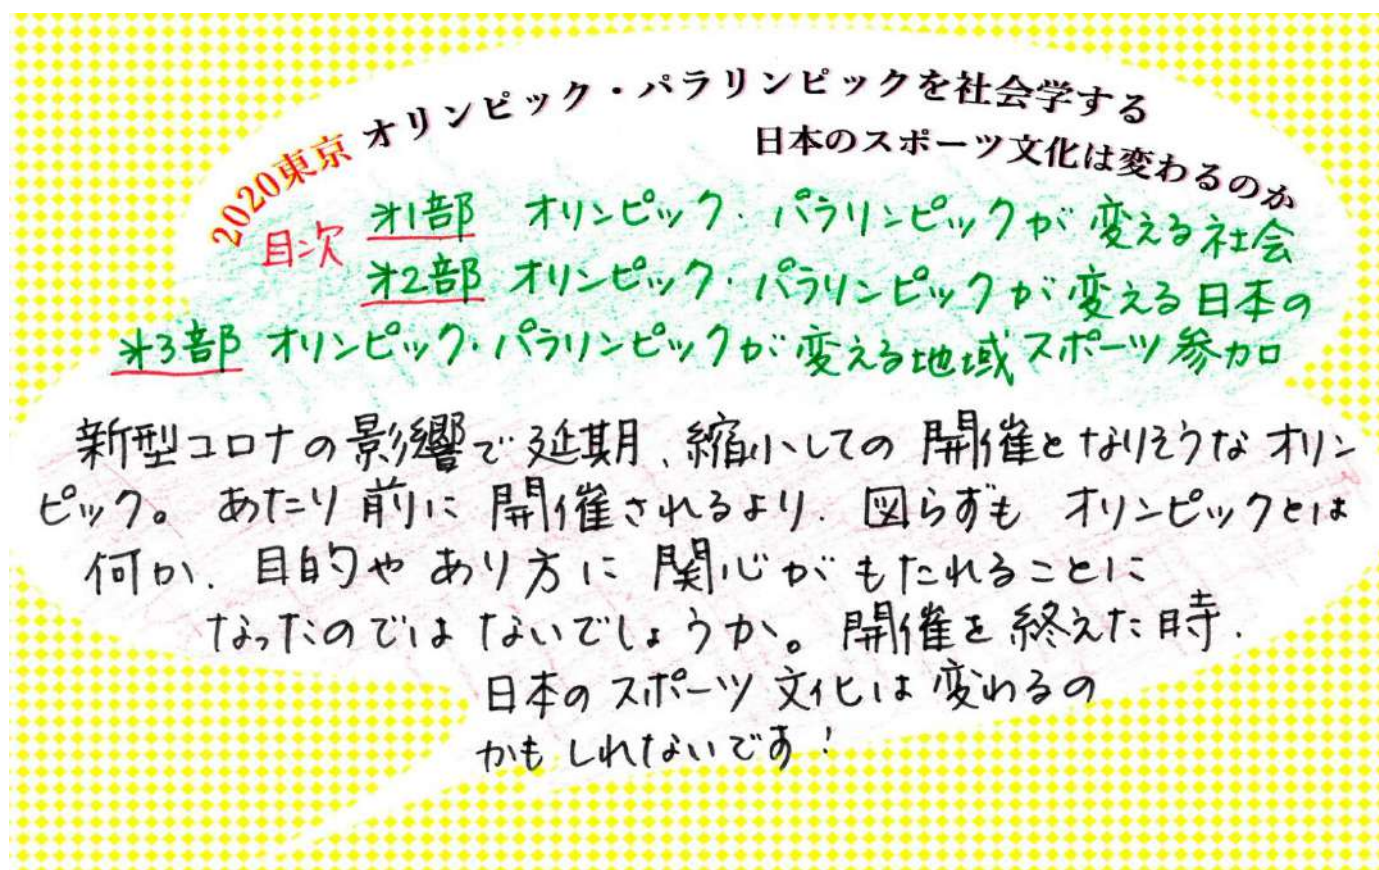 2020東京 オリンピック・パラリンピックを社会学する
日本のスポーツ文化は変わるのか
目次 第1部 オリンピック・パラリンピックが変える社会
第2部 オリンピック・パラリンピックが変える日本の
第3部 オリンピック・パラリンピックが変える地域スポーツ参加
新型コロナの影響で延期、縮小しての開催となりそうなオリン
ピック。あたり前に開催されるより、図らずもオリンピックとは
何か、目的やあり方に関心がもたれることに
なったのではないでしょうか。開催を終えた時、
日本のスポーツ文化は変わるの
かもしれないです!